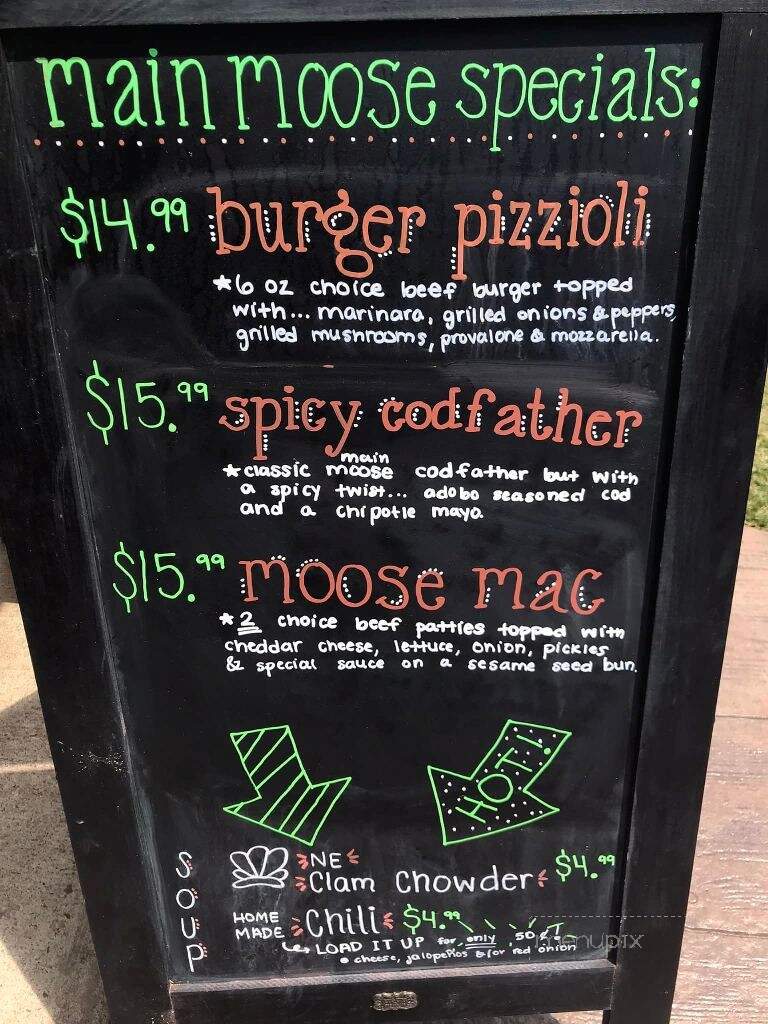 main moose specials:
$14.99 burger pizzioli
*6 oz choice beef burger topped
with... marinara, grilled onions & peppers,
grilled mushrooms, provalone & mozzarella.
$15.99 spicy codfather
*classic main moose codfather but with
a spicy twist... adobo seasoned cod
and a chipotle mayo
$15.99 moose mac
*2 choice beef patties topped with
cheddar cheese, lettuce, onion, pickles
& special sauce on a sesame seed bun.
HOT!
SOUP
NE
Clam Chowder $4.99
HOME MADE Chili $4.99
LOAD IT UP for only .50¢!
• cheese, jalapeños &/or red onion
menupix